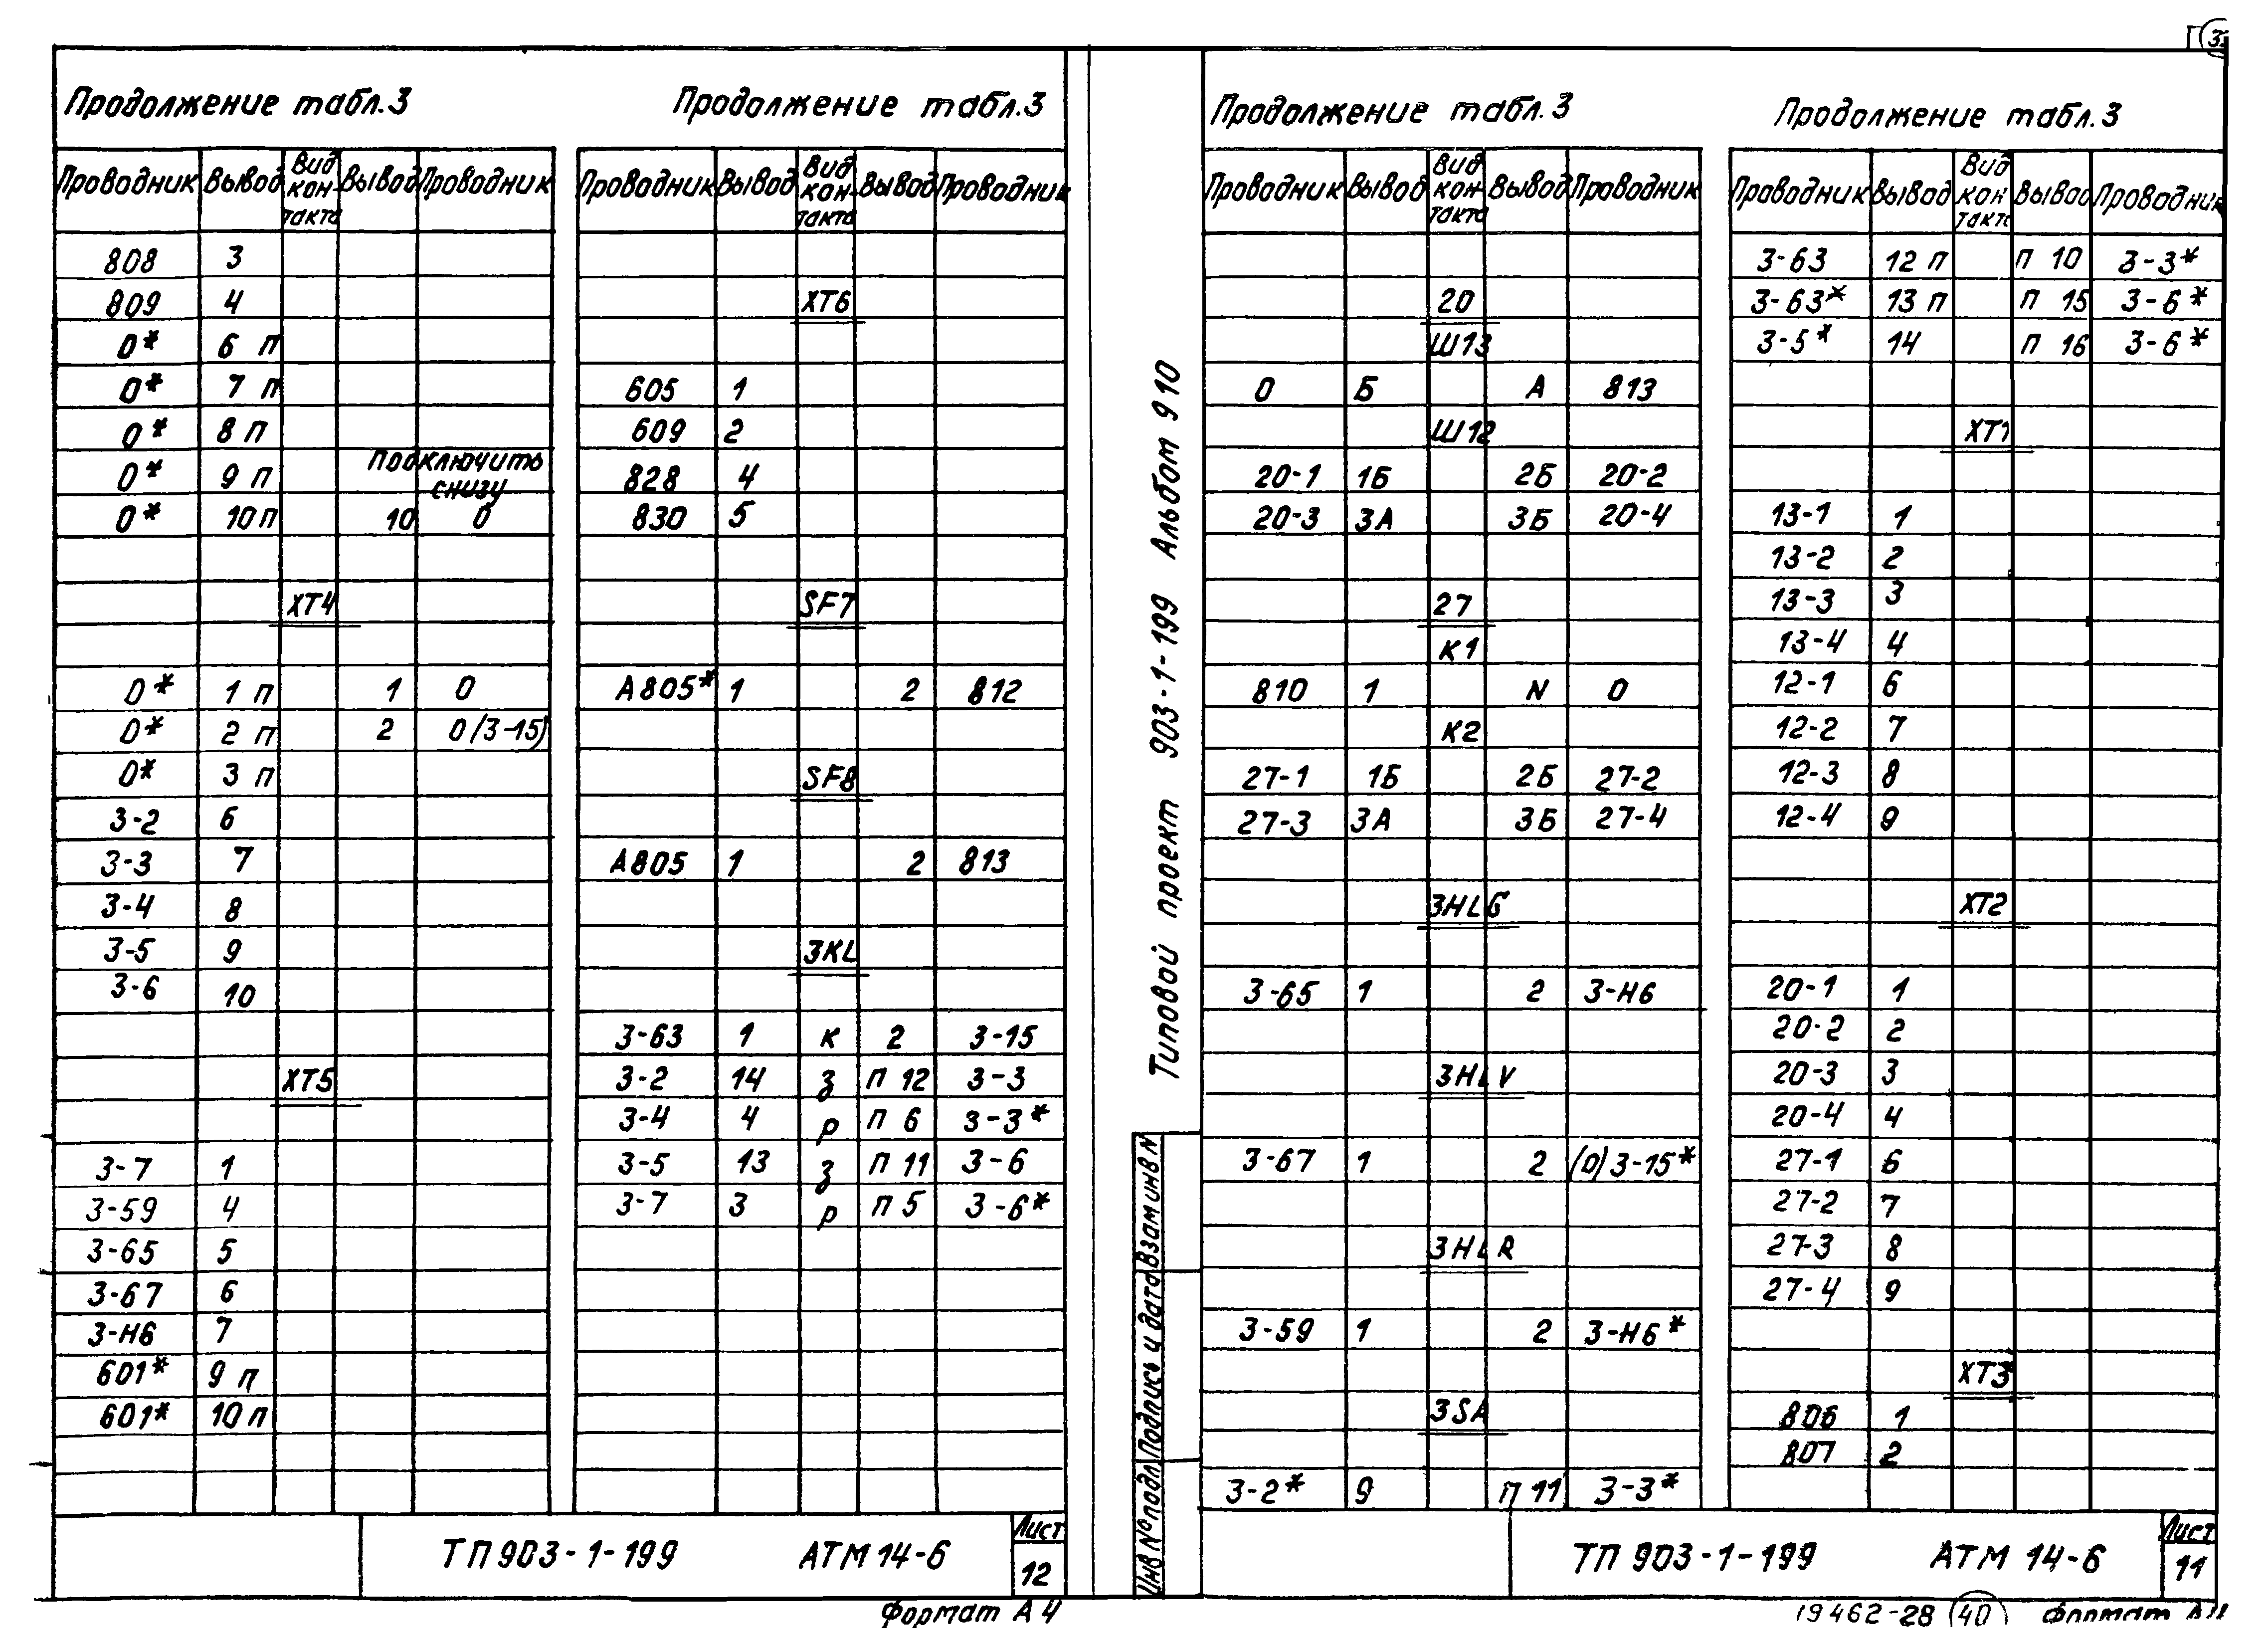 Продолжение табл.3
Проводник Вывод Вид контакта Вывод Проводник
808 3
809 4
0* 6 п
0* 7 п
0* 8 п
0* 9 п Подключить снизу
0* 10 п 10 0
XT4
0* 1 п 1 0
0* 2 п 2 0/3-15)
0* 3 п
3-2 6
3-3 7
3-4 8
3-5 9
3-6 10
XT5
3-7 1
3-59 4
3-65 5
3-67 6
3-Н6 7
601* 9 п
601* 10 п
Продолжение табл.3
Проводник Вывод Вид контакта Вывод Проводник
XT6
605 1
609 2
828 4
830 5
SF7
А805* 1 2 812
SF8
А805 1 2 813
3KL
3-63 1 к 2 3-15
3-2 14 з п 12 3-3
3-4 4 р п 6 3-3*
3-5 13 з п 11 3-6
3-7 3 р п 5 3-6*
ТП 903-1-199 АТМ 14-6
Лист
12
Формат А4
Типовой проект 903-1-199 Альбом 9 10
Взам инв N
Подпись и дата
Инв № подл
Продолжение табл.3
Проводник Вывод Вид контакта Вывод Проводник
20
Ш13
0 Б А 813
Ш12
20-1 1Б 2Б 20-2
20-3 3А 3Б 20-4
27
К1
810 1 N 0
К2
27-1 1Б 2Б 27-2
27-3 3А 3Б 27-4
3HLG
3-65 1 2 3-Н6
3HLV
3-67 1 2 (0)3-15*
3HLR
3-59 1 2 3-Н6*
3SA
3-2* 9 п 11 3-3*
Продолжение табл.3
Проводник Вывод Вид контакта Вывод Проводник
3-63 12 п п 10 3-3*
3-63* 13 п п 15 3-6*
3-5* 14 п 16 3-6*
XT1
13-1 1
13-2 2
13-3 3
13-4 4
12-1 6
12-2 7
12-3 8
12-4 9
XT2
20-1 1
20-2 2
20-3 3
20-4 4
27-1 6
27-2 7
27-3 8
27-4 9
XT3
806 1
807 2
ТП 903-1-199 АТМ 14-6
Лист
11
19462-28 40 Формат